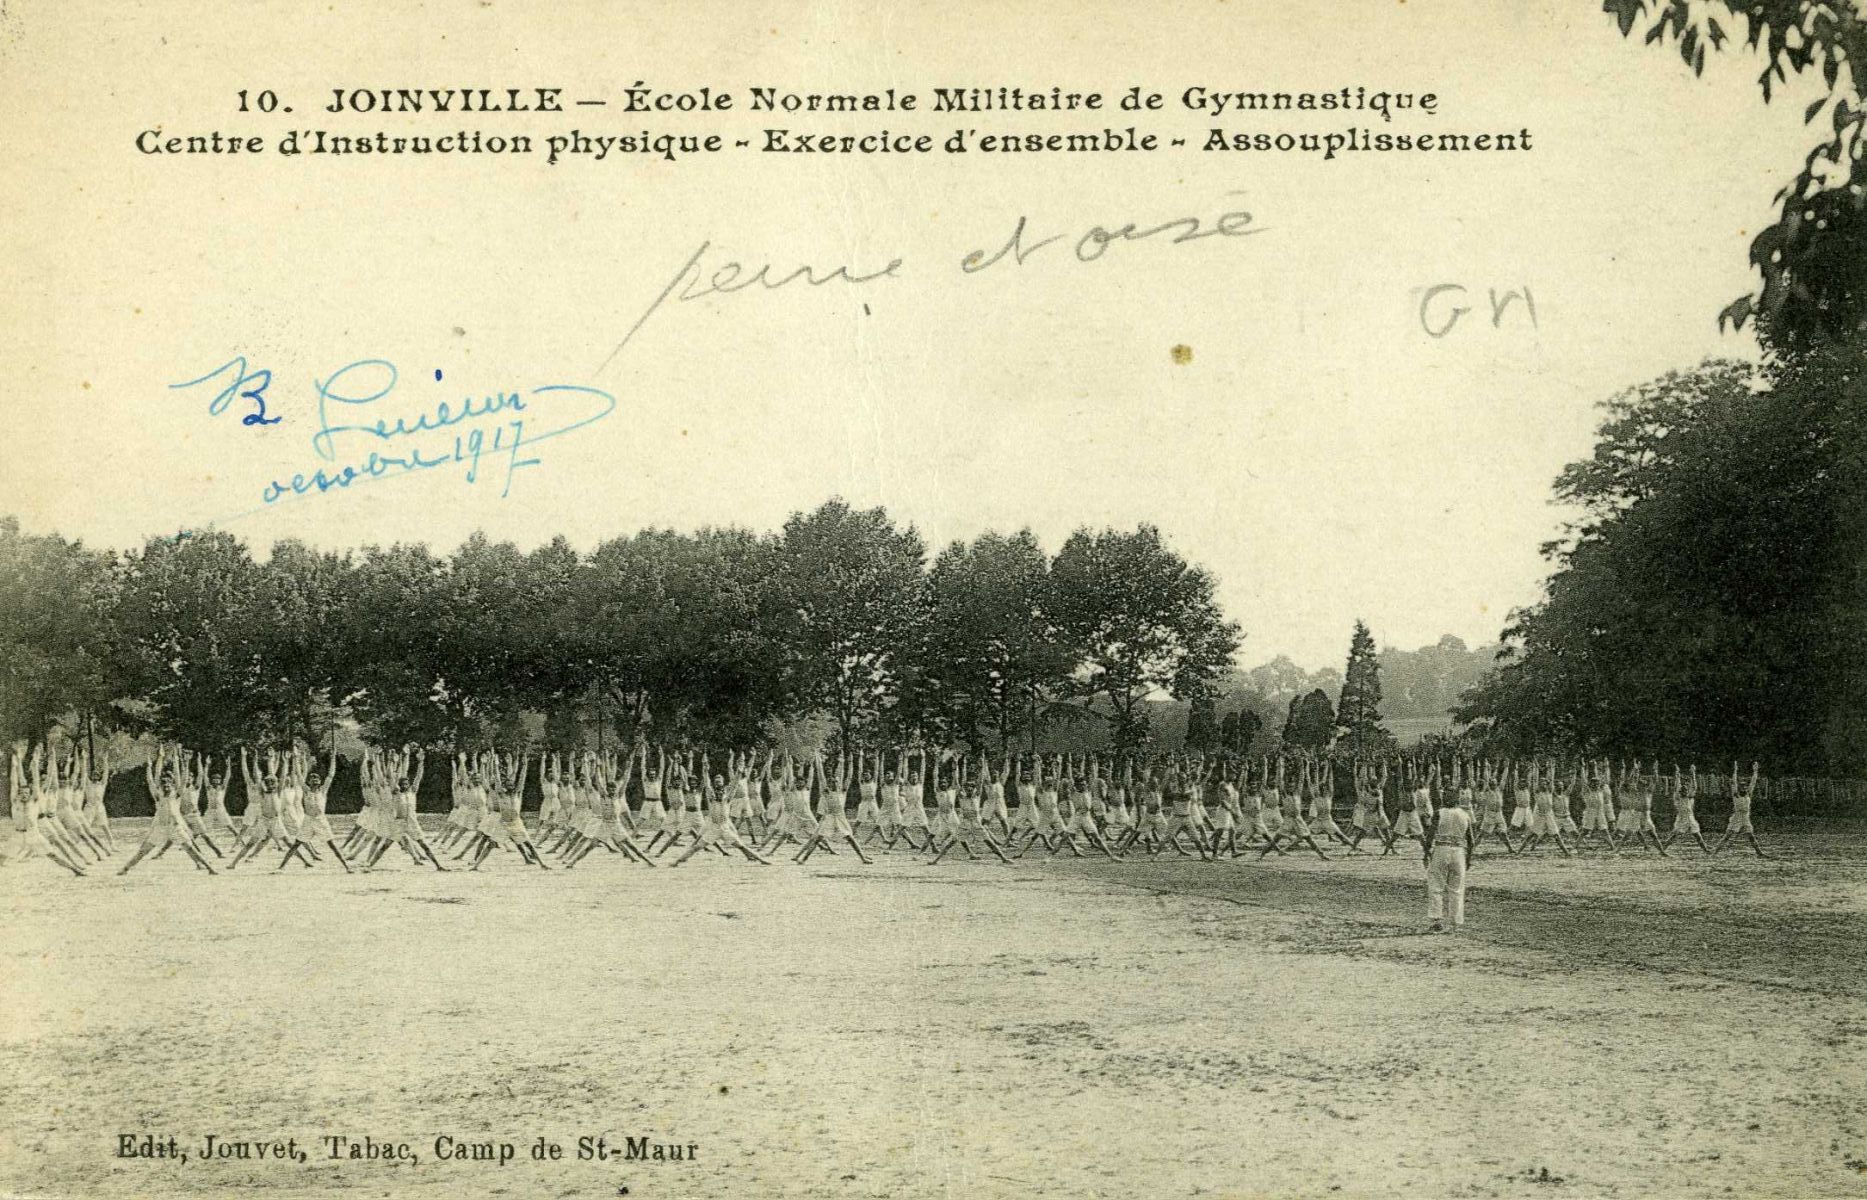 10. JOINVILLE — École Normale Militaire de Gymnastique
Centre d'Instruction physique - Exercice d'ensemble - Assouplissement
et oise
octobre 1917
Edit, Jouvet, Tabac, Camp de St-Maur